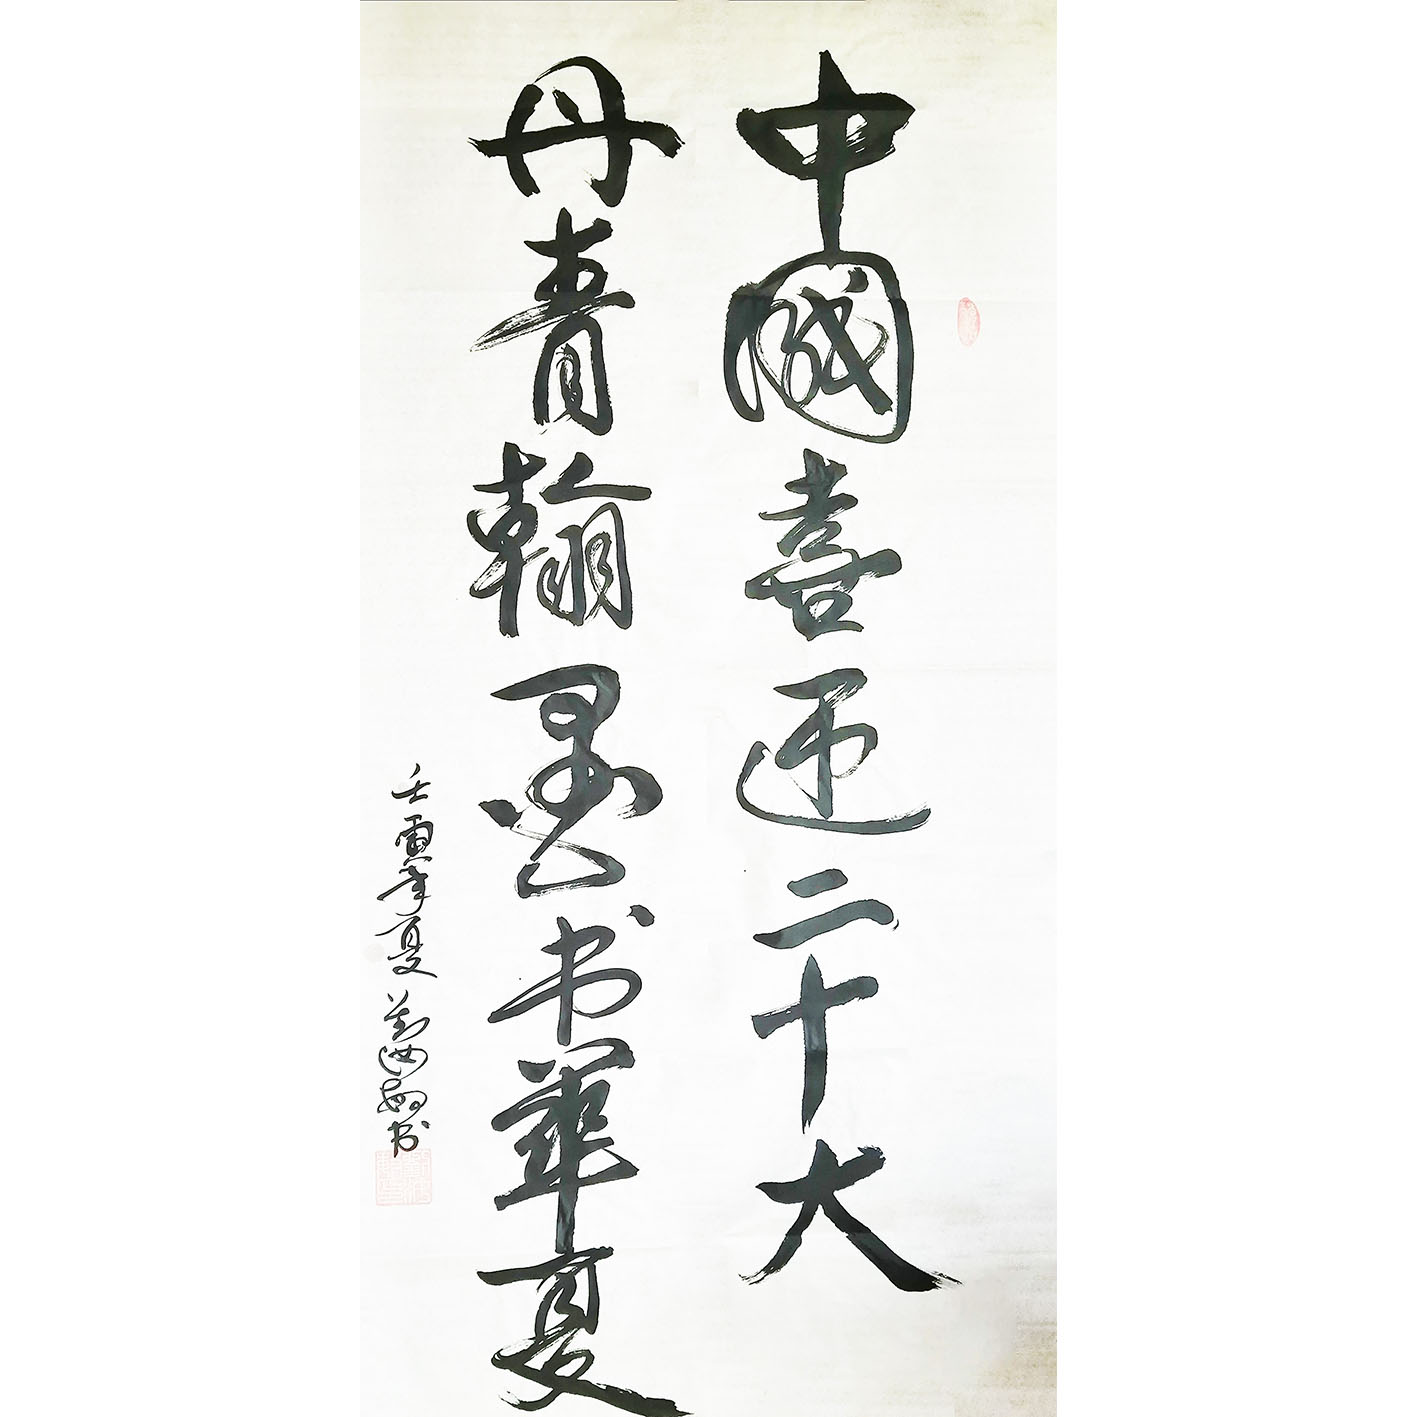 中國喜迎二十大
丹青翰墨书華夏
壬寅年夏 书